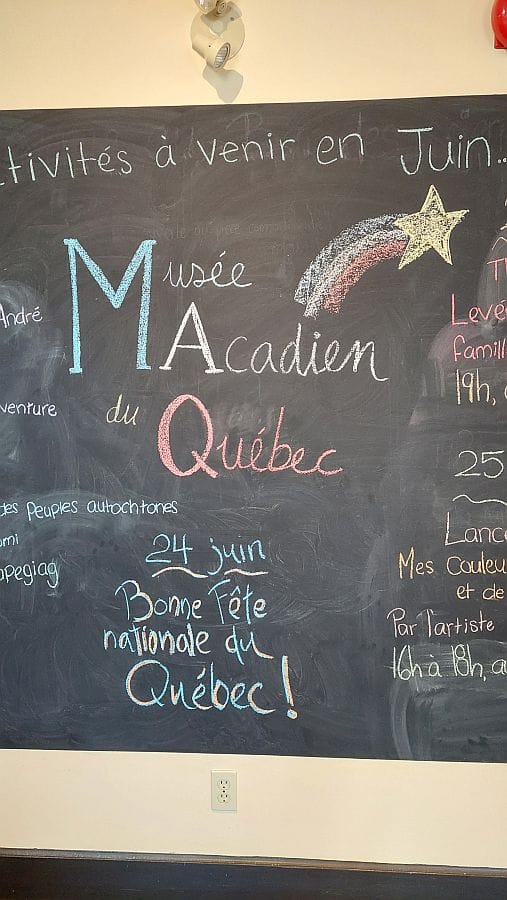 tivités à venir en Juin...
Musée
Acadien
du
Québec
André
venture
des Peuples autochtones
omi
apegiag
24 juin
Bonne Fête
nationale du
Québec!
Levé
famill
19h,
25
Lance
Mes Couleu
et de
Par l'artiste
16h à 18h, a